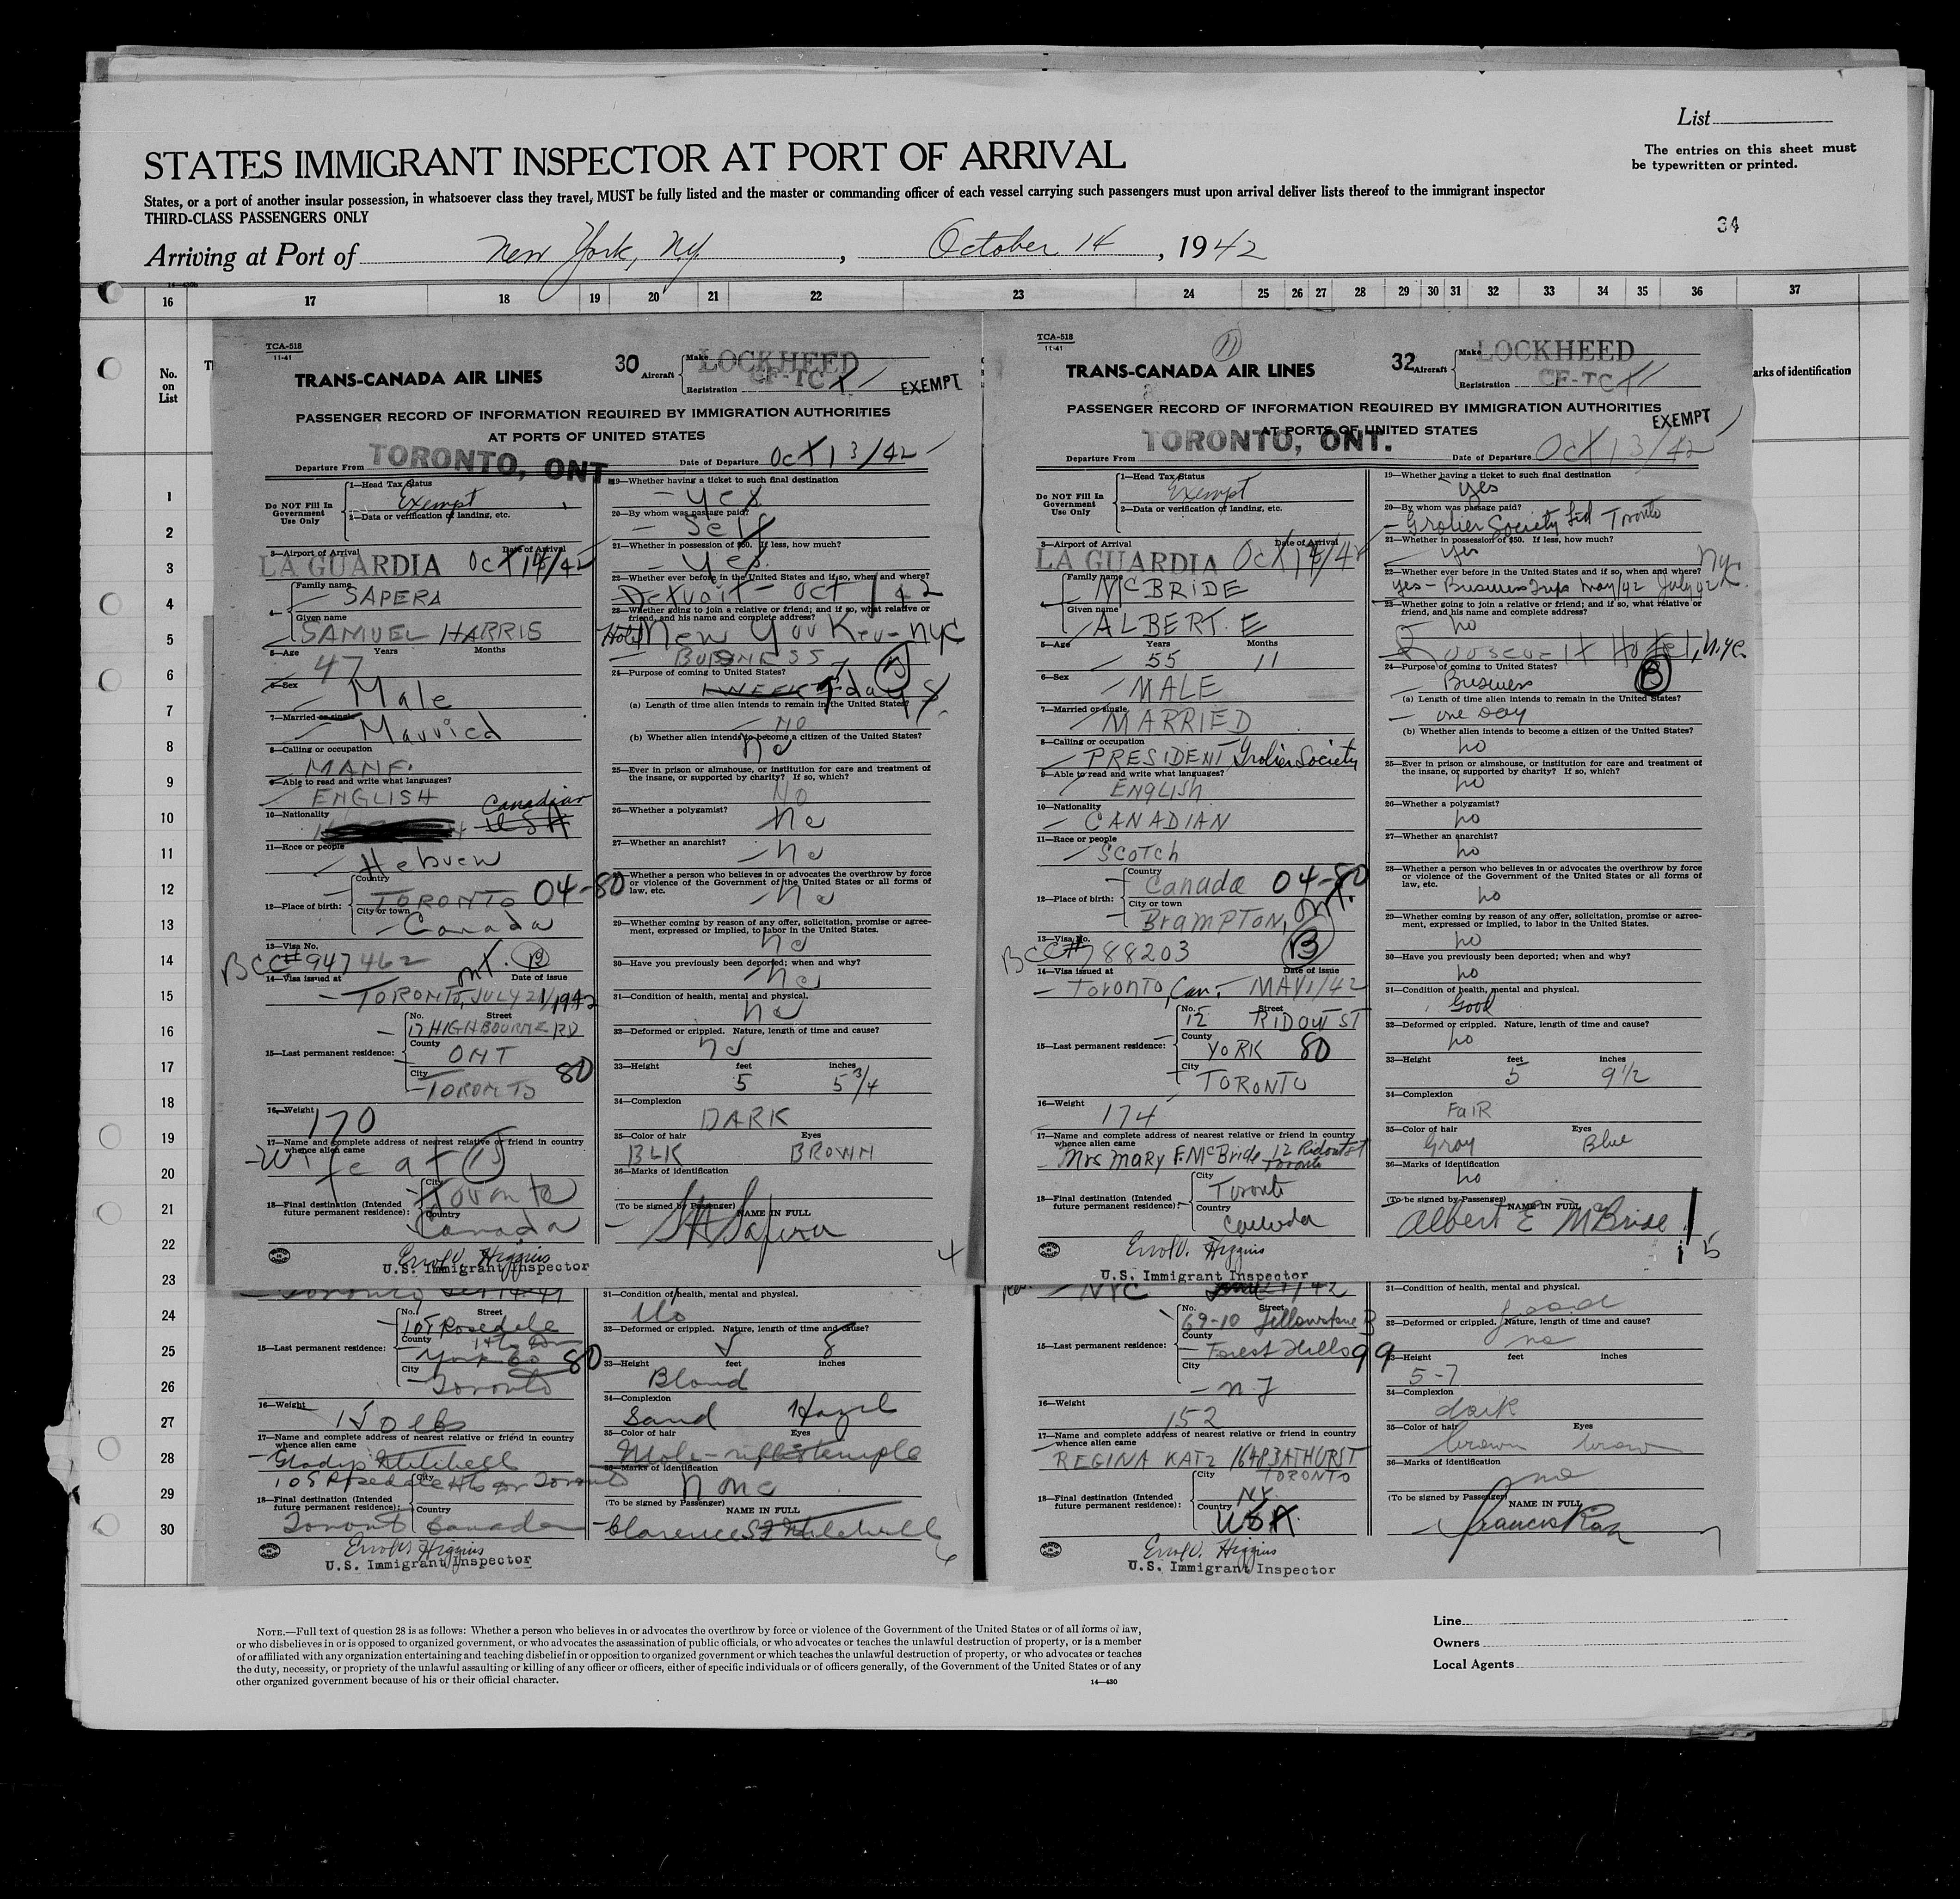 List
STATES IMMIGRANT INSPECTOR AT PORT OF ARRIVAL
The entries on this sheet must
be typewritten or printed.
States, or a port of another insular possession, in whatsoever class they travel, MUST be fully listed and the master or commanding officer of each vessel carrying such passengers must upon arrival deliver lists thereof to the immigrant inspector
THIRD-CLASS PASSENGERS ONLY
34
Arriving at Port of New York, N.Y. , October 14 , 1942
16 17 18 19 20 21 22 23 24 25 26 27 28 29 30 31 32 33 34 35 36 37
No.
on
List
arks of identification
1
2
3
4
5
6
7
8
9
10
11
12
13
14
15
16
17
18
19
20
21
22
23
24
25
26
27
28
29
30
TCA-518
11-41
TRANS-CANADA AIR LINES
30 Aircraft
Make LOCKHEED
Registration CF-TCX
EXEMPT
PASSENGER RECORD OF INFORMATION REQUIRED BY IMMIGRATION AUTHORITIES
AT PORTS OF UNITED STATES
Departure From TORONTO, ONT. Date of Departure Oct 13/42
Do NOT Fill In
Government
Use Only
1—Head Tax Status
Exempt
2—Data or verification of landing, etc.
3—Airport of Arrival Date of Arrival
LA GUARDIA Oct 14/42
4— Family name
SAPERA
Given name
SAMUEL HARRIS
5—Age Years Months
47
6—Sex
Male
7—Married or single
Married
8—Calling or occupation
MANF.
9—Able to read and write what languages?
ENGLISH
10—Nationality
Canadian
USA
11—Race or people
Hebrew
12—Place of birth: Country
TORONTO 04-80
City or town
Canada
13—Visa No.
BCC# 947462 Ont. B
14—Visa issued at Date of issue
TORONTO, JULY 21/1942
15—Last permanent residence: No. Street
17 HIGHBOURNE RD
County
ONT
City
TORONTO 80
16—Weight
170
17—Name and complete address of nearest relative or friend in country
whence alien came
Wife at 15
18—Final destination (Intended
future permanent residence): City
Toronto
Country
Canada
Errol V. Higgins
U.S. Immigrant Inspector
19—Whether having a ticket to such final destination
yes
20—By whom was passage paid?
Self
21—Whether in possession of $50. If less, how much?
Yes
22—Whether ever before in the United States and if so, when and where?
Detroit - Oct / 42
23—Whether going to join a relative or friend; and if so, what relative or
friend, and his name and complete address?
Hotel New Yorker - NYC
BUSINESS B
24—Purpose of coming to United States?
1 WEEK 7 days
(a) Length of time alien intends to remain in the United States?
NO
(b) Whether alien intends to become a citizen of the United States?
no
25—Ever in prison or almshouse, or institution for care and treatment of
the insane, or supported by charity? If so, which?
NO
26—Whether a polygamist?
No
27—Whether an anarchist?
No
28—Whether a person who believes in or advocates the overthrow by force
or violence of the Government of the United States or all forms of
law, etc.
No
29—Whether coming by reason of any offer, solicitation, promise or agree-
ment, expressed or implied, to labor in the United States.
No
30—Have you previously been deported; when and why?
No
31—Condition of health, mental and physical.
no
32—Deformed or crippled. Nature, length of time and cause?
no
33—Height feet inches
5 5 3/4
34—Complexion
DARK
35—Color of hair Eyes
BLK BROWN
36—Marks of identification
(To be signed by Passenger) NAME IN FULL
S H Sapera
4
TCA-518
11-41
11
TRANS-CANADA AIR LINES
32 Aircraft
Make LOCKHEED
Registration CF-TCX
EXEMPT
PASSENGER RECORD OF INFORMATION REQUIRED BY IMMIGRATION AUTHORITIES
AT PORTS OF UNITED STATES
Departure From TORONTO, ONT. Date of Departure Oct 13/42
Do NOT Fill In
Government
Use Only
1—Head Tax Status
Exempt
2—Data or verification of landing, etc.
3—Airport of Arrival Date of Arrival
LA GUARDIA Oct 14/42
Family name
McBRIDE
Given name
ALBERT. E
5—Age Years Months
55 11
6—Sex
MALE
7—Married or single
MARRIED
8—Calling or occupation
PRESIDENT Grolier Society
9—Able to read and write what languages?
ENGLISH
10—Nationality
CANADIAN
11—Race or people
SCOTCH
12—Place of birth: Country
Canada 04-80
City or town
BRAMPTON, Ont.
13—Visa No.
BCC# 788203 B
14—Visa issued at Date of issue
Toronto, Can. - MAY 1/42
15—Last permanent residence: No. Street
12 RIDOUT ST
County
YORK 80
City
TORONTO
16—Weight
174
17—Name and complete address of nearest relative or friend in country
whence alien came
Mrs MARY F. McBride 12 Ridout St
Toronto
18—Final destination (Intended
future permanent residence): City
Toronto
Country
Canada
Errol V. Higgins
U.S. Immigrant Inspector
19—Whether having a ticket to such final destination
yes
20—By whom was passage paid?
Grolier Society Ltd Toronto
21—Whether in possession of $50. If less, how much?
yes
22—Whether ever before in the United States and if so, when and where?
yes - Business Trips May/42 July 42 NYC
23—Whether going to join a relative or friend; and if so, what relative or
friend, and his name and complete address?
no
Roosevelt Hotel, N.Y.C.
24—Purpose of coming to United States?
Business B
(a) Length of time alien intends to remain in the United States?
one day
(b) Whether alien intends to become a citizen of the United States?
no
25—Ever in prison or almshouse, or institution for care and treatment of
the insane, or supported by charity? If so, which?
no
26—Whether a polygamist?
no
27—Whether an anarchist?
no
28—Whether a person who believes in or advocates the overthrow by force
or violence of the Government of the United States or all forms of
law, etc.
no
29—Whether coming by reason of any offer, solicitation, promise or agree-
ment, expressed or implied, to labor in the United States.
no
30—Have you previously been deported; when and why?
no
31—Condition of health, mental and physical.
Good
32—Deformed or crippled. Nature, length of time and cause?
no
33—Height feet inches
5 9 1/2
34—Complexion
FAIR
35—Color of hair Eyes
Gray Blue
36—Marks of identification
no
(To be signed by Passenger) NAME IN FULL
Albert E McBride
5
15—Last permanent residence: No. Street
105 Rosedale
Hts Dr
County
York Co 80
City
Toronto
16—Weight
150 lbs
17—Name and complete address of nearest relative or friend in country
whence alien came
Gladys Mitchell
105 Rosedale Hts Dr Toronto
18—Final destination (Intended
future permanent residence): City
Toronto
Country
Canada
Errol V. Higgins
U.S. Immigrant Inspector
31—Condition of health, mental and physical.
No
32—Deformed or crippled. Nature, length of time and cause?
5 8
33—Height feet inches
Blond
34—Complexion
Sand Hazel
35—Color of hair Eyes
Mole - temple
36—Marks of identification
None
(To be signed by Passenger)
NAME IN FULL
Clarence Mitchell
6
NYC
15—Last permanent residence: No. Street
69-10 Yellowstone B
County
Forest Hills 99
City
NY
16—Weight
152
17—Name and complete address of nearest relative or friend in country
whence alien came
REGINA KATZ 1648 BATHURST
TORONTO
18—Final destination (Intended
future permanent residence): City
NY.
Country
USA.
Errol V. Higgins
U.S. Immigrant Inspector
31—Condition of health, mental and physical.
good
32—Deformed or crippled. Nature, length of time and cause?
no
33—Height feet inches
5-7
34—Complexion
dark
35—Color of hair Eyes
brown brown
36—Marks of identification
no
(To be signed by Passenger)
NAME IN FULL
Francis
7
NOTE.—Full text of question 28 is as follows: Whether a person who believes in or advocates the overthrow by force or violence of the Government of the United States or of all forms of law,
or who disbelieves in or is opposed to organized government, or who advocates the assassination of public officials, or who advocates or teaches the unlawful destruction of property, or is a member
of or affiliated with any organization entertaining and teaching disbelief in or opposition to organized government or which teaches the unlawful destruction of property, or who advocates or teaches
the duty, necessity, or propriety of the unlawful assaulting or killing of any officer or officers, either of specific individuals or of officers generally, of the Government of the United States or of any
other organized government because of his or their official character.
14—430
Line
Owners
Local Agents